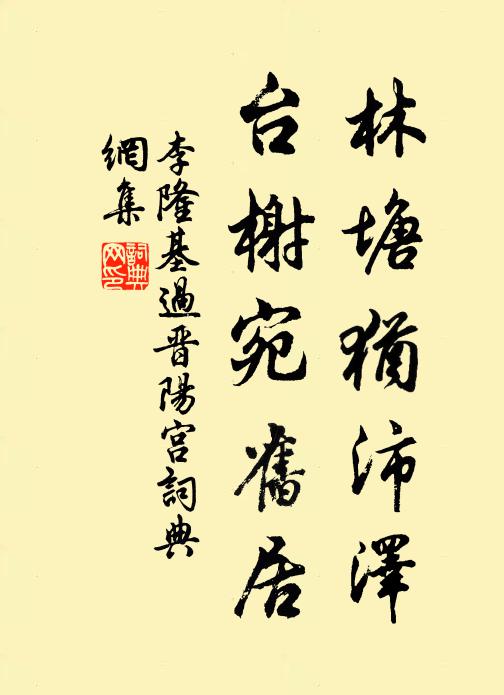 林塘猶沛澤
台榭宛舊居
李隆基過晋陽宮詞典
網集
詞典網印